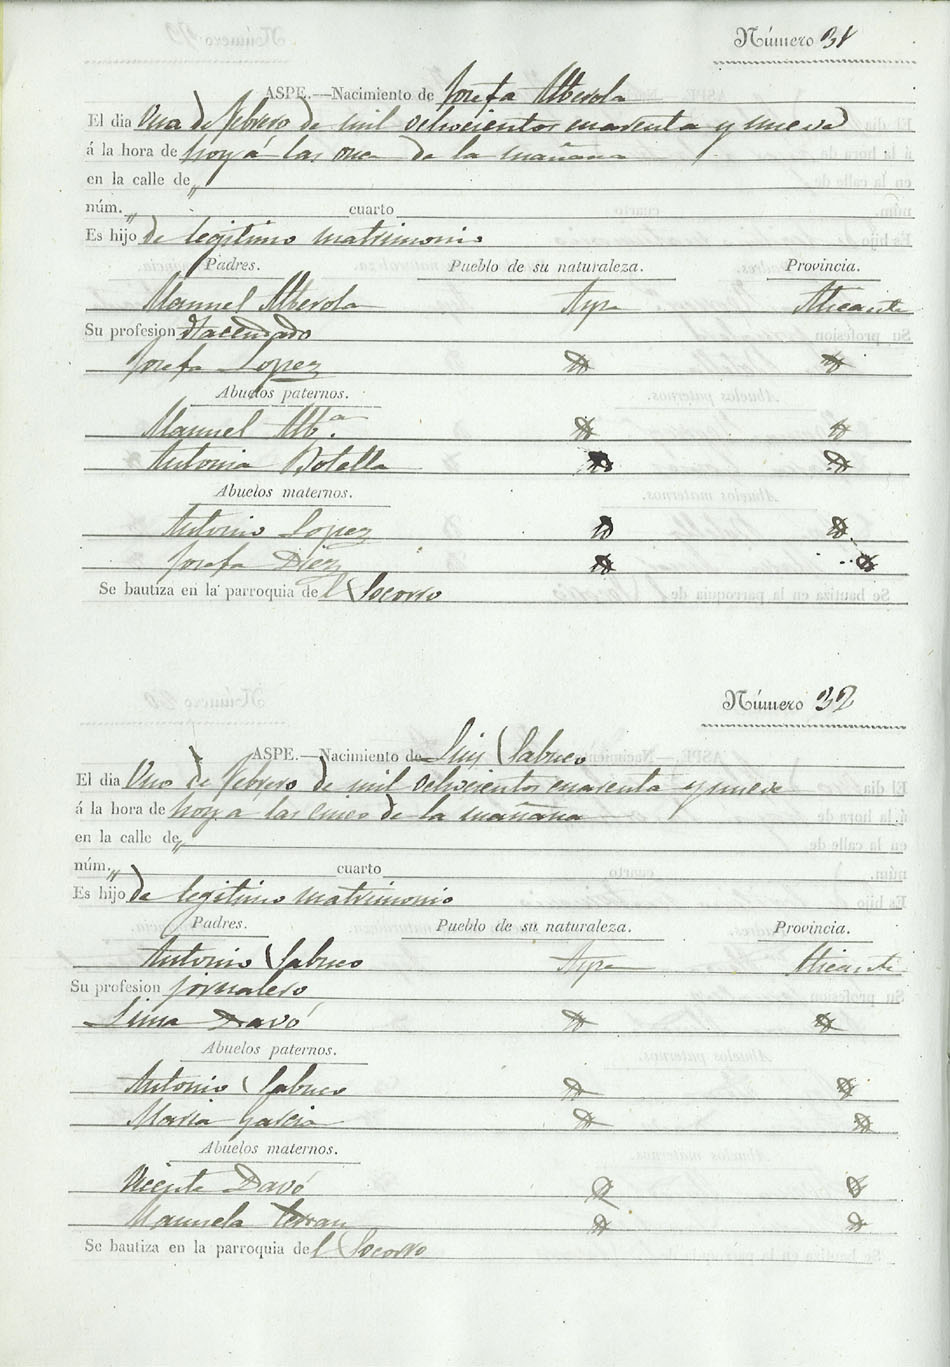 Número 31
ASPE.—Nacimiento de Josefa Alberola
El dia Uno de Febrero de mil ochocientos cuarenta y nueve
á la hora de hoy á las once de la mañana
en la calle de „
núm. „ cuarto
Es hijo de legitimo matrimonio
Padres. Pueblo de su naturaleza. Provincia.
Manuel Alberola Aspe Alicante
Su profesion Hacendado
Josefa Lopez
Abuelos paternos.
Manuel Alb.ª
Antonia Botella
Abuelos maternos.
Antonio Lopez
Josefa Diez
Se bautiza en la parroquia del Socorro
Número 32
ASPE.—Nacimiento de Luis Sabuco
El dia Uno de Febrero de mil ochocientos cuarenta y nueve
á la hora de hoy a las cinco de la mañana
en la calle de „
núm. „ cuarto
Es hijo de legitimo matrimonio
Padres. Pueblo de su naturaleza. Provincia.
Antonio Sabuco Aspe Alicante
Su profesion jornalero
Davó
Abuelos paternos.
Antonio Sabuco
Maria Garcia
Abuelos maternos.
Vicente Davó
Manuela
Se bautiza en la parroquia del Socorro